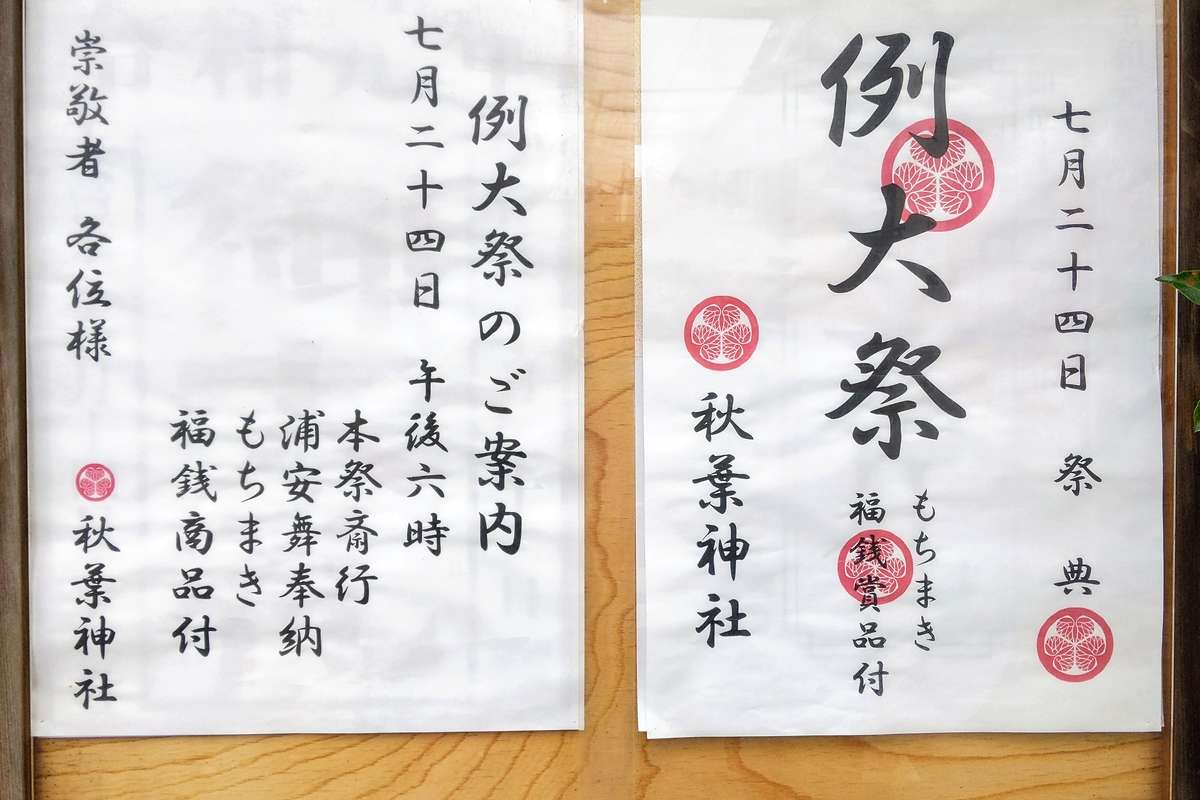 七月二十四日 祭典
例大祭
もちまき
福銭賞品付
秋葉神社
例大祭のご案内
七月二十四日 午後六時
本祭斎行
浦安舞奉納
もちまき
福銭商品付
崇敬者 各位様
秋葉神社